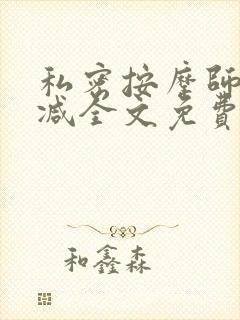 私密按摩師
减全文免費
和鑫森